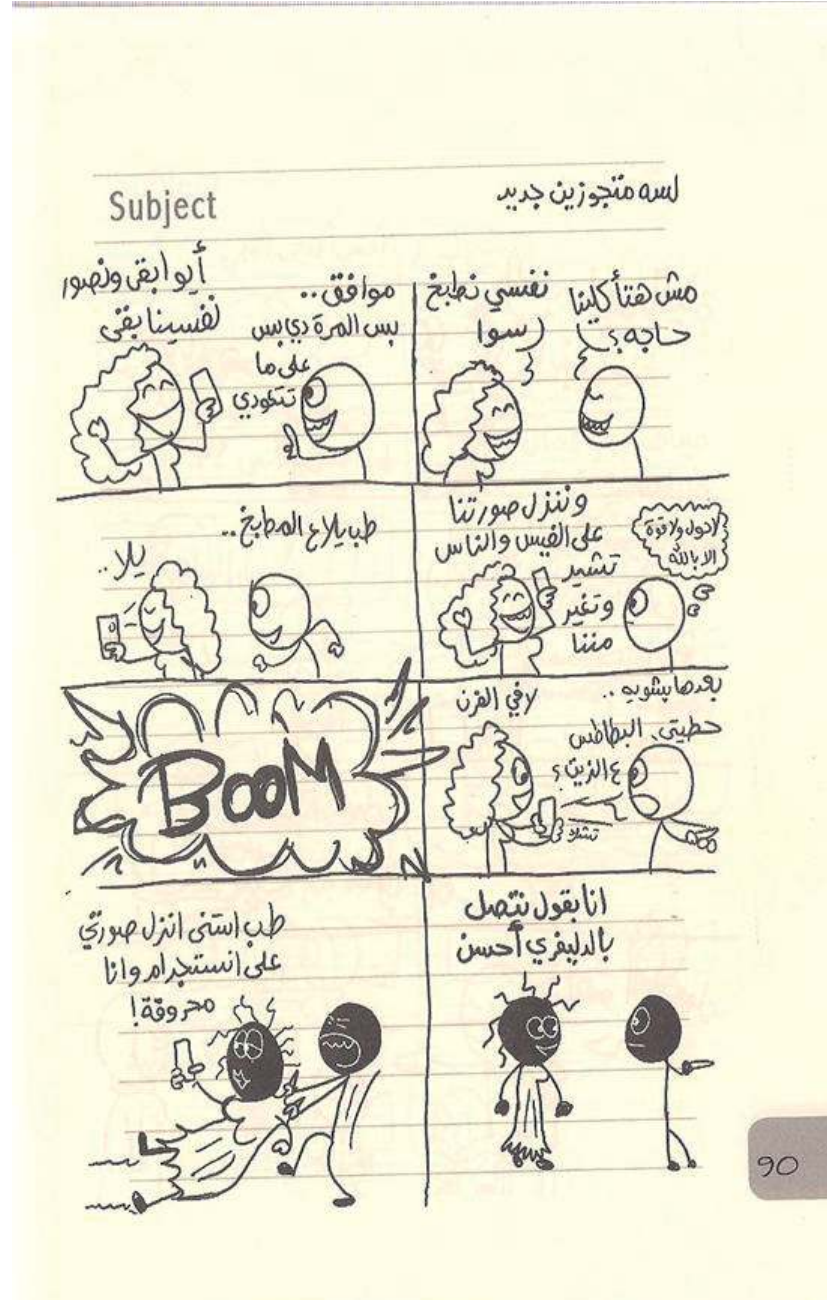 Subject
لسه متجوزين جديد
مش هتأكلينا
حاجه؟
نفسي نطبخ
سوا
موافق..
بس المرة دي بس
على ما
تتعودي
أيوا ابقى ونصور
نفسينا بقى
لاحول ولا قوة
الا بالله
وننزل صورتنا
على الفيس والناس
تشير
وتغير
مننا
طب يلا ع المطبخ..
يلا..
بعدها بشويه..
حطيتي البطاطس
ع الزيت؟
لا في الفرن
BOOM
انا بقول نتصل
بالدليفري أحسن
طب استنى انزل صورتي
على انستجرام وانا
محروقة!
90